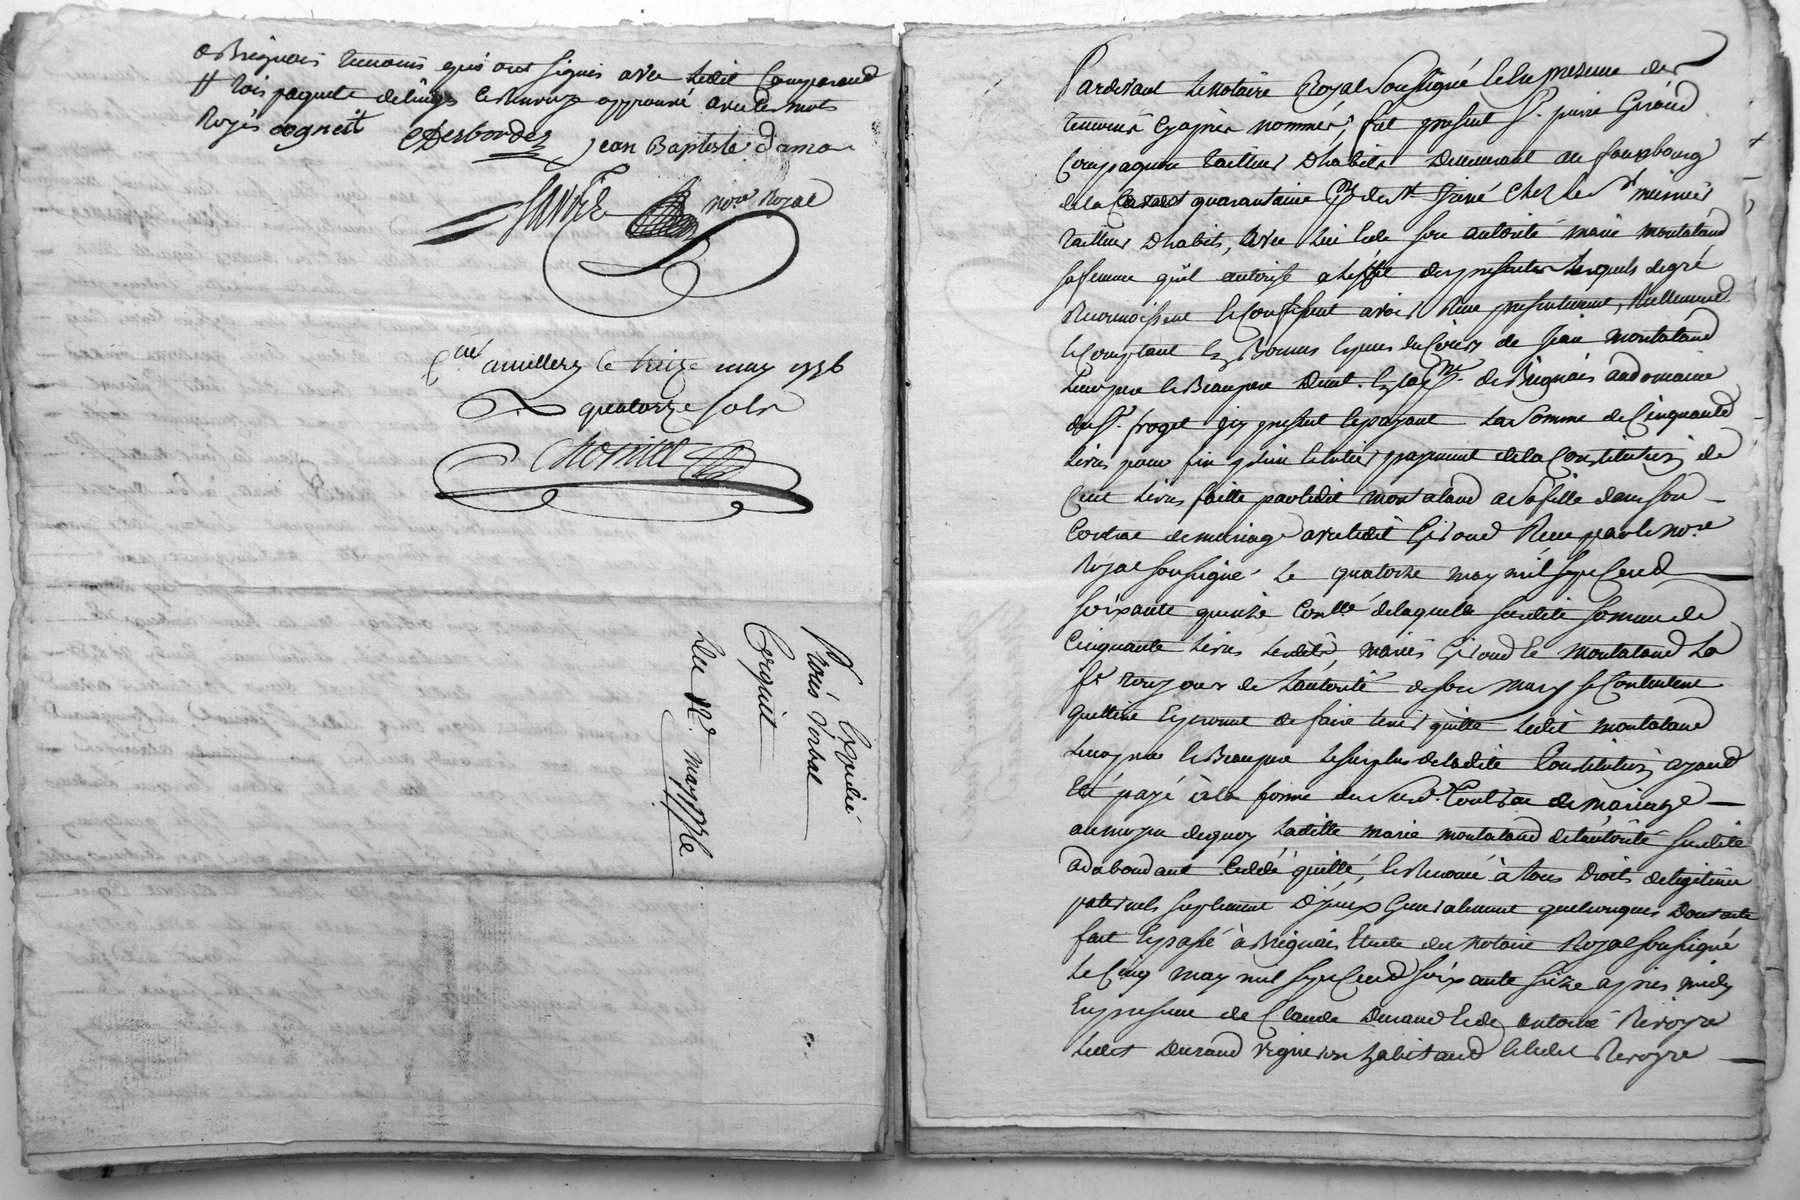 de Brignais temoins qui ont signés avec ledit Comparand
# trois paquets de linges et renvoy approuvé avec les mots
Royés cognet Desbordes Jean Baptiste dama
no.re Royal
Con.lé le treize may 1776
quatorze sols
Expedié
Procés Verbal
Le 12 may
Pardevant Le Notaire Royal soussigné et en presence des
temoins cy après nommés, fut present S.r pierre Giroud
Compagnon tailleur D'habits Demeurant au fauxbourg
de la quarantaine P.sse de S.t Irené Chez le S.r meunier
tailleur D'habits, avec lui et de son autorité marie montaland
sa femme qu'il autorise a l'effet des presentes Lesquels de gré
Reconnoissent et Confessent avoir Reçu presentement, Reellement
et Comptant en Bonnes especes du Cours de Jean montaland
Leur pere et Beaupere Dem.t en la p.sse de Brignais au domaine
du S.r froget icy present et payant La Somme de Cinquante
Livres pour fin et entier payement de la Constitution de
Cent Livres faitte par ledit montaland a sa fille dans son
Contrat de mariage avec ledit Giroud Reçu par le no.re
Royal soussigné le quatorze may mil sept Cent
soixante quinze Con.llé de laquelle susdite somme de
Cinquante Livres lesdits mariés Giroud et montaland La
f.e toujours de L'autorité de son mary se Contentent
quittent et promet de faire tenir quitte Ledit montaland
Leur pere et Beaupere Le surplus de ladite Constitution ayant
Eté payé à la forme du Susd.t Contrat de mariage
au moyen de quoy Laditte marie montaland de l'autorité susdite
adabondant Cedde quitte, et Renonce à tous Droits de legitime
paternels suplement D'yceux Generalement quelconques Dont acte
fait et passé à Brignais Etude du Notaire Royal soussigné
Le Cinq may mil sept Cent soixante seize après midy
En presence de Claude Durand et de antoine Revoyre
Ledit Durand vigneron habitant et ledit Revoyre